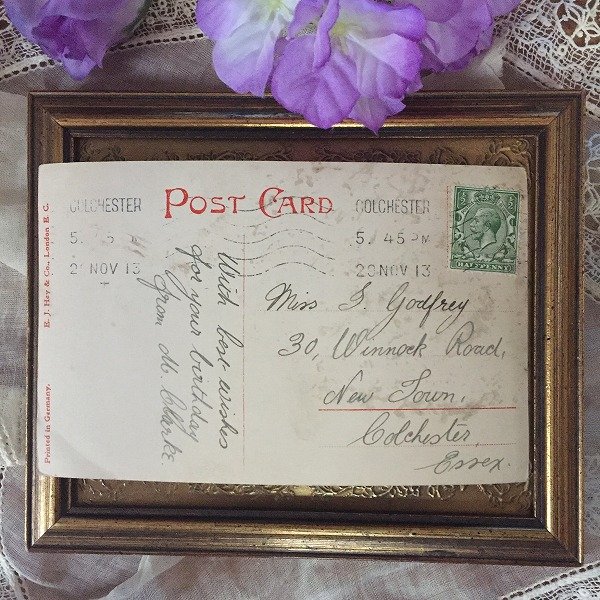 COLCHESTER
5. 45 PM
20 NOV 13
POST CARD
COLCHESTER
5. 45 PM
20 NOV 13
HALFPENNY
E. J. Hey & Co., London E. C.
Printed in Germany.
With best wishes
for your birthday
from M. Clarke.
Miss J. Godfrey
30, Winnock Road,
New Town,
Colchester,
Essex.